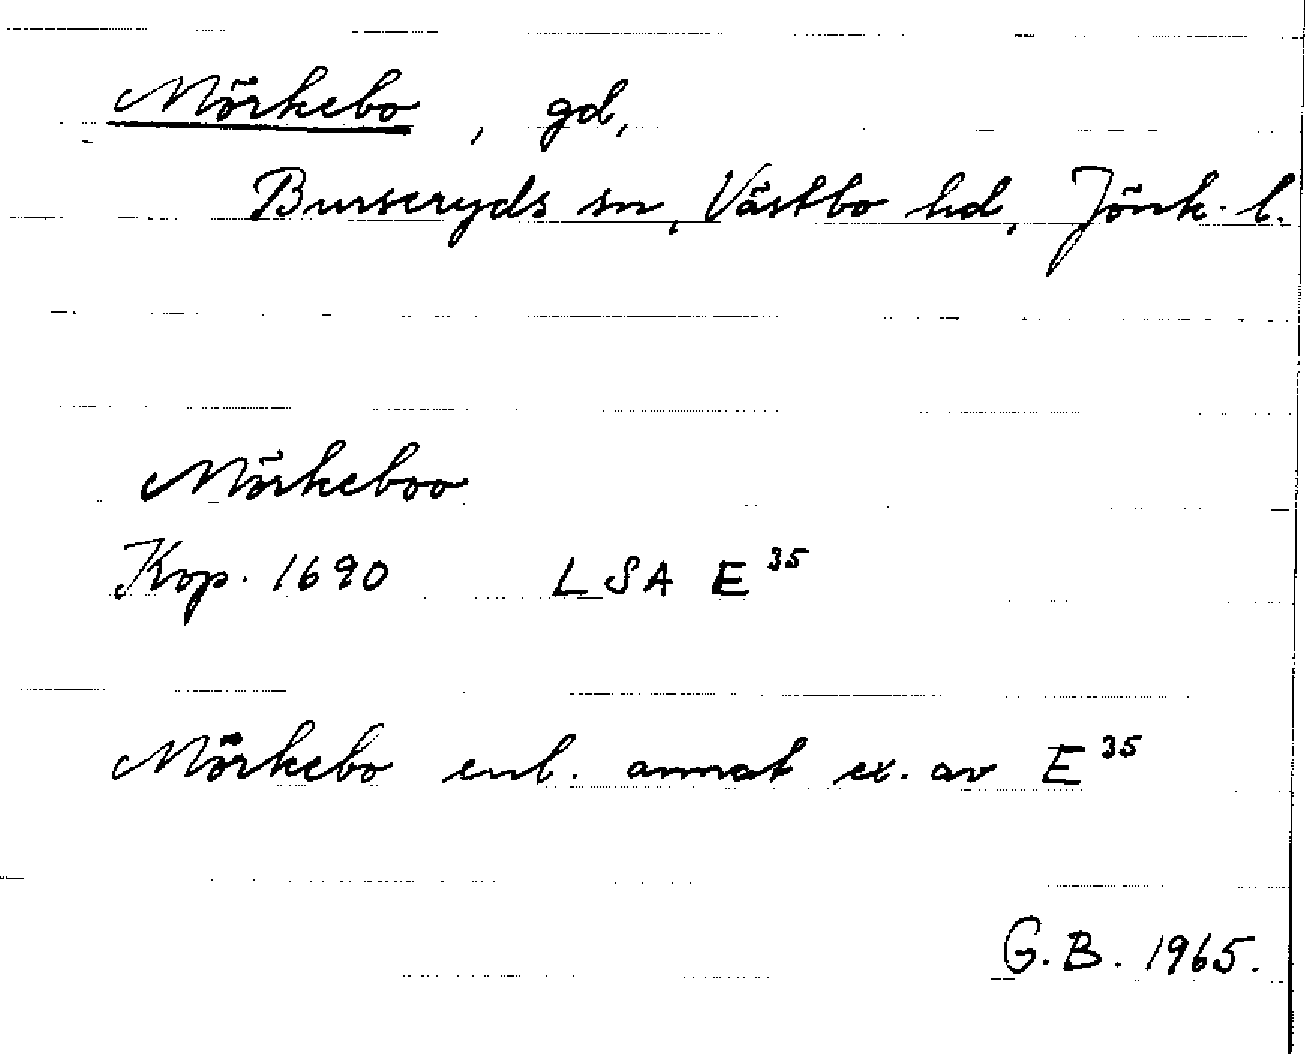 Mörkebo, gd,
Burseryds sn, Västbo hd, Jönk. l.
Mörkeboo
Kop. 1690 LSA E³⁵
Mörkebo enl. annat ex. av E³⁵
G.B. 1965.